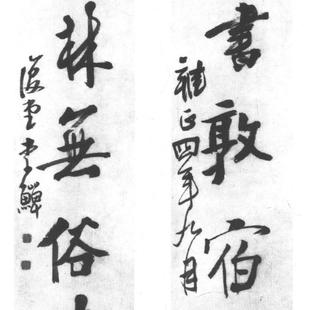 書敦宿
雍正四年九月
林無俗
復堂李鱓